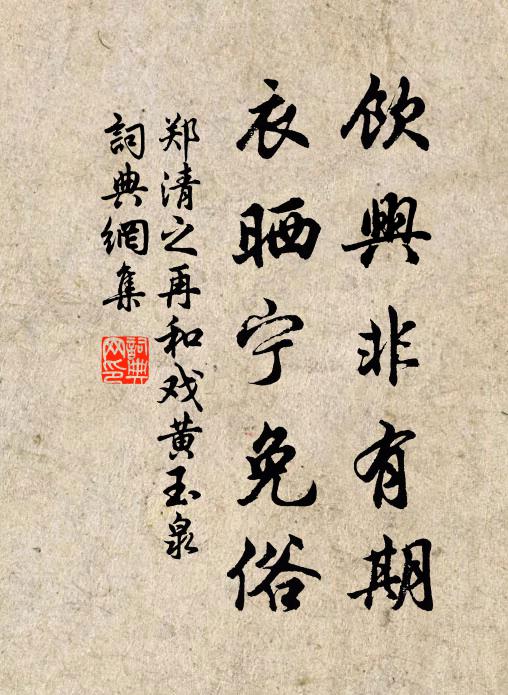 饮興非有期
衣晒宁免俗
郑清之再和戏黄玉泉
詞典網集
詞典
网印